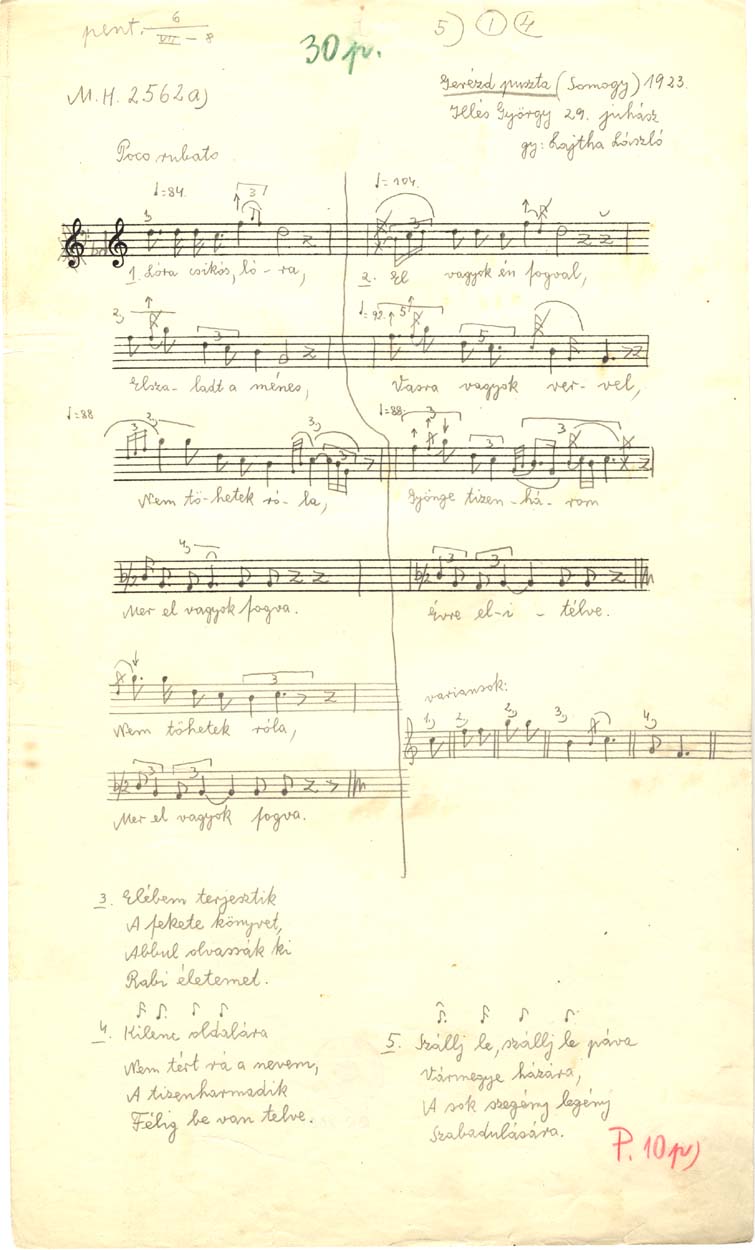 pent. 6
VII - 8
5) 1 4
30 p.
M.H. 2562a)
Gerézd puszta (Somogy) 1923.
Illés György 29. juhász
gy: Lajtha László
Poco rubato
♩=84.
♩=104.
1. Lóra csikós, ló-ra,
2. El vagyok én fogval,
♩=92.
Elsza-ladt a ménes,
Vasra vagyok ver-vel,
♩=88
♩=88.
Nem tö-hetek ró-la,
Gyönge tizen-há-rom
Mer el vagyok fogva.
Évre el-i-télve.
Nem töhetek róla,
variansok:
1) 2) 2) 3) 4)
Mer el vagyok fogva.
3. Elébem terjesztik
A fekete könyvet,
Abbul olvassák ki
Rabi életemet.
4. Kilenc oldalára
Nem tért rá a nevem,
A tizenharmadik
Félig be van telve.
5. Szállj le, szállj le páva
Vármegye házára,
A sok szegény legény
Szabadulására.
P. 10p)